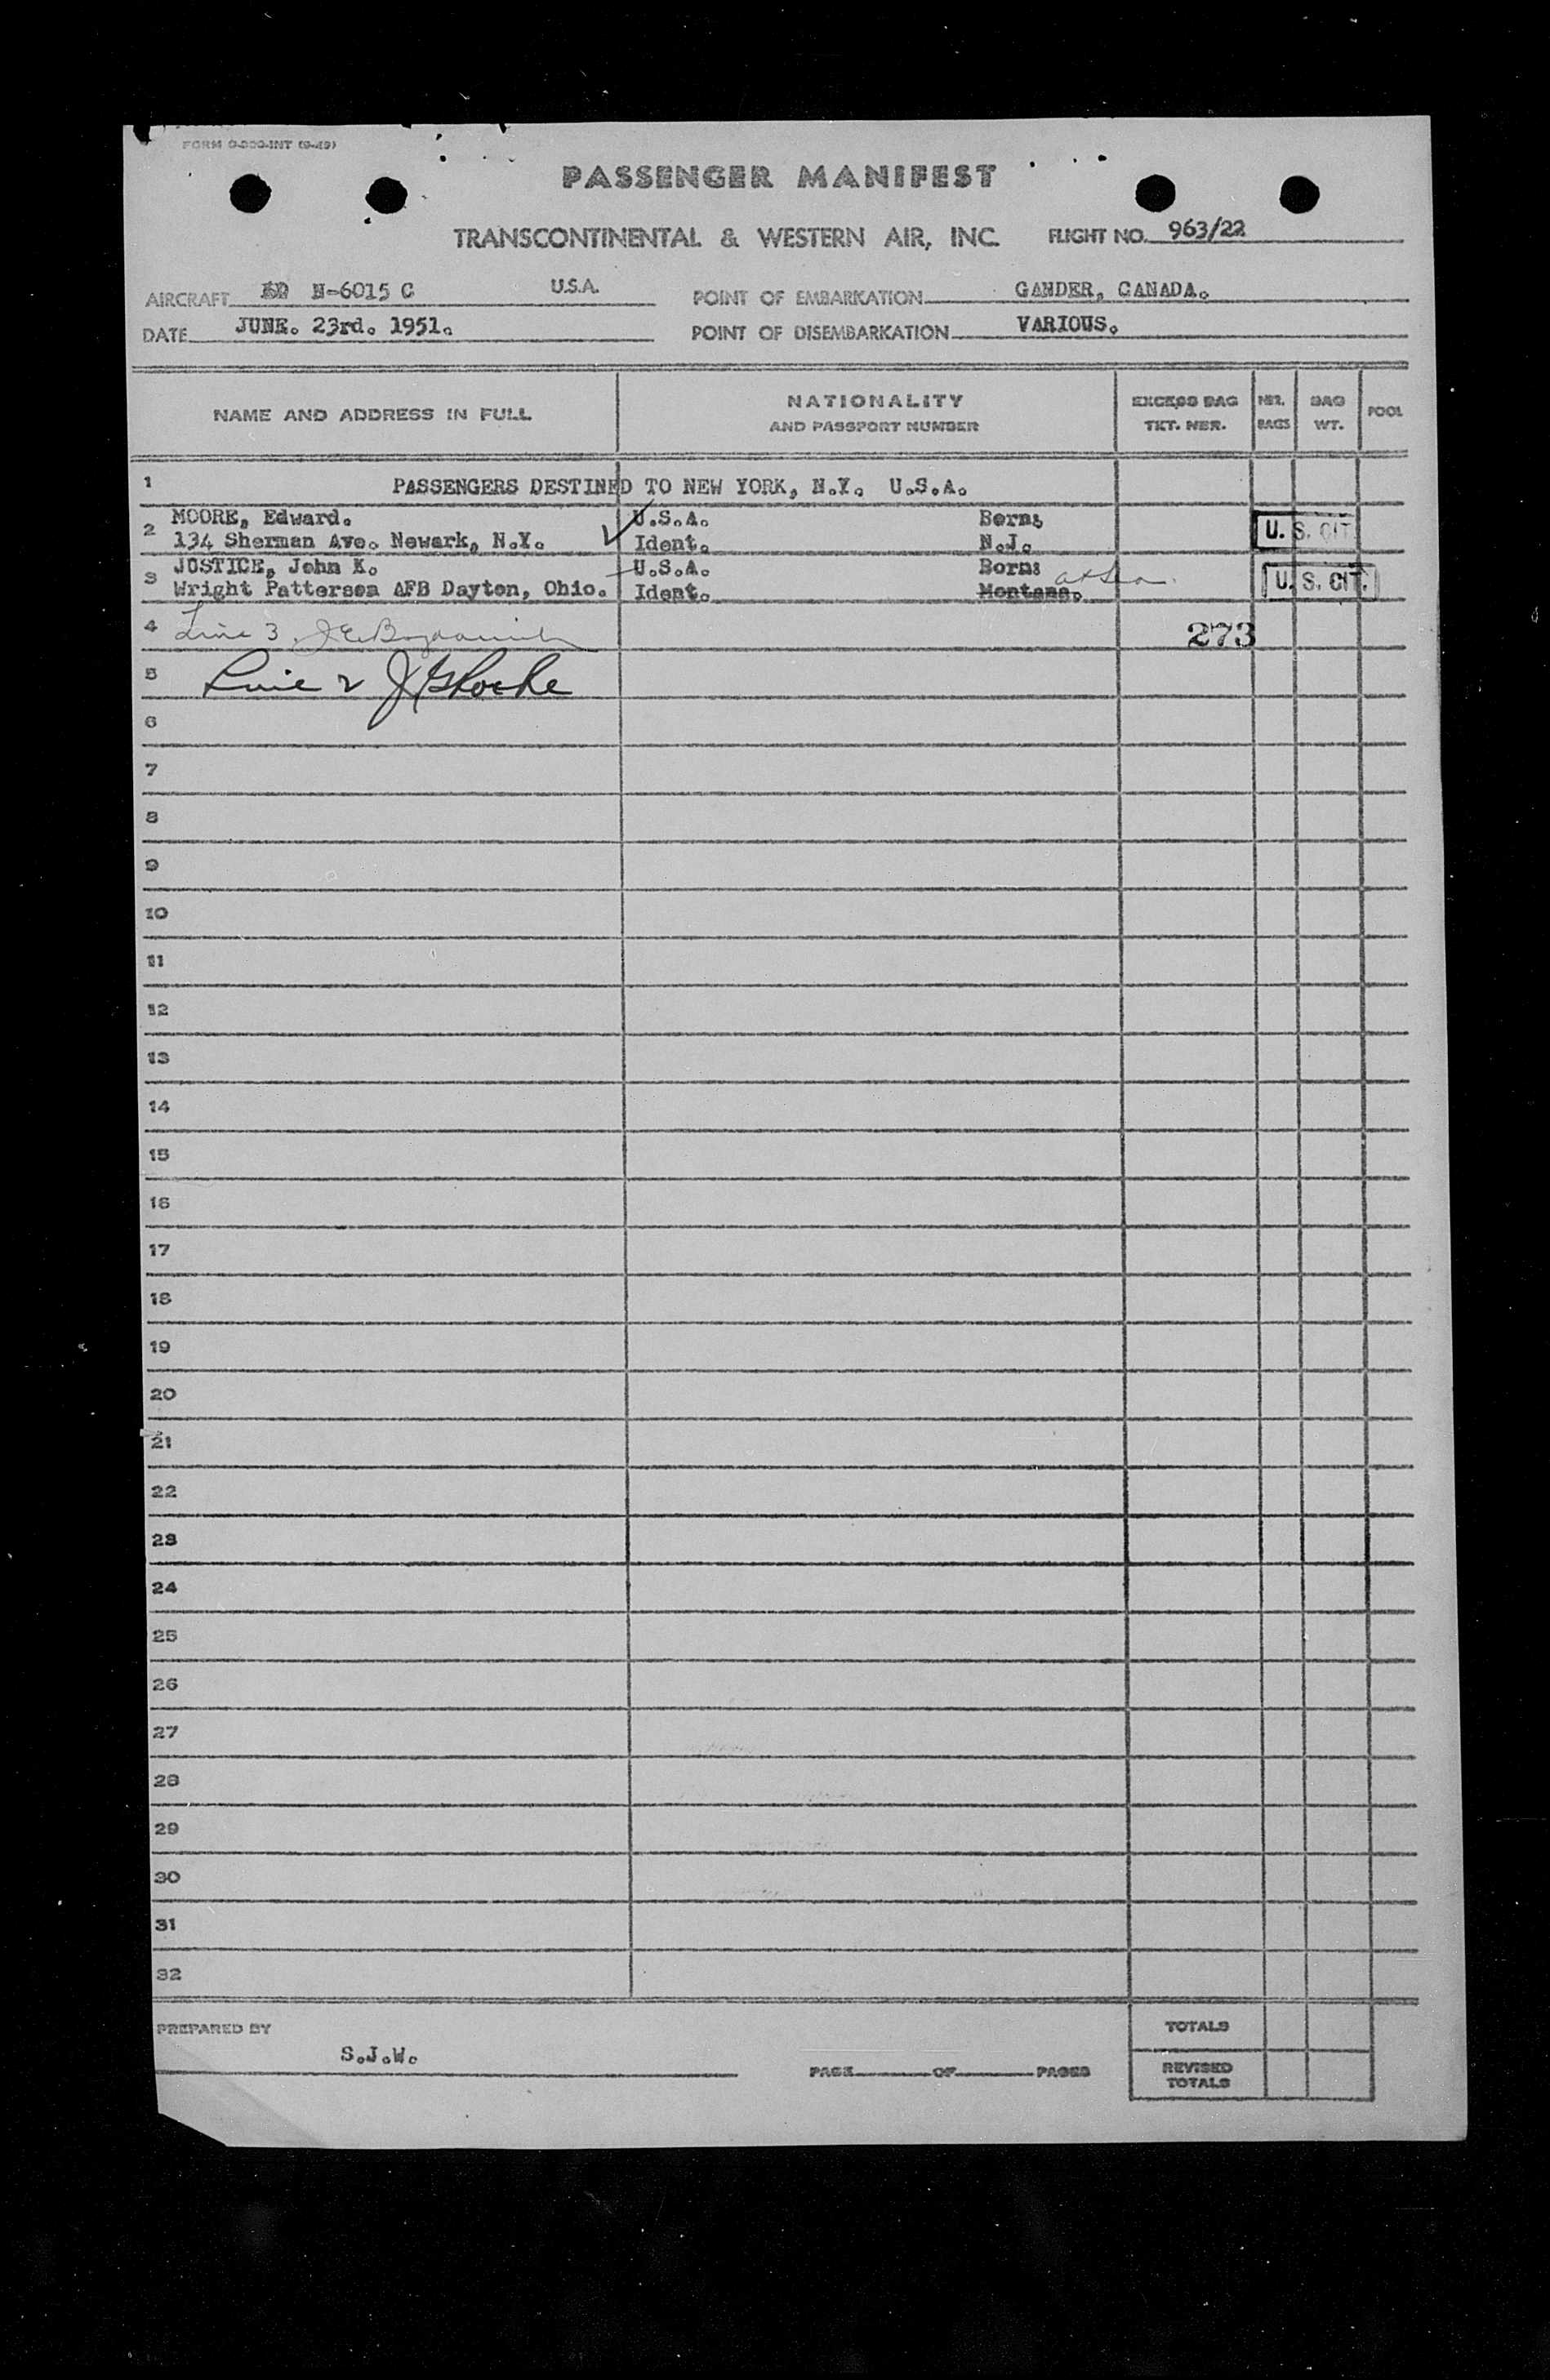 PASSENGER MANIFEST
TRANSCONTINENTAL & WESTERN AIR, INC. FLIGHT NO. 963/22
AIRCRAFT N-6015 C U.S.A. POINT OF EMBARKATION GANDER, CANADA.
DATE JUNE. 23rd. 1951. POINT OF DISEMBARKATION VARIOUS.
NAME AND ADDRESS IN FULL NATIONALITY AND PASSPORT NUMBER EXCESS BAG TKT. NBR. NBR. BAGS BAG WT. POOL
1 PASSENGERS DESTINED TO NEW YORK, N.Y. U.S.A.
2 MOORE, Edward. U.S.A. Born:
134 Sherman Ave. Newark, N.Y. Ident. N.J. U. S. CIT.
3 JUSTICE, John K. U.S.A. Born: at Sea.
Wright Patterson AFB Dayton, Ohio. Ident. Montana. U. S. CIT.
4 Line 3. 273
5 Line 2
6
7
8
9
10
11
12
13
14
15
16
17
18
19
20
21
22
23
24
25
26
27
28
29
30
31
32
PREPARED BY S.J.W. PAGE OF PAGES
TOTALS
REVISED TOTALS